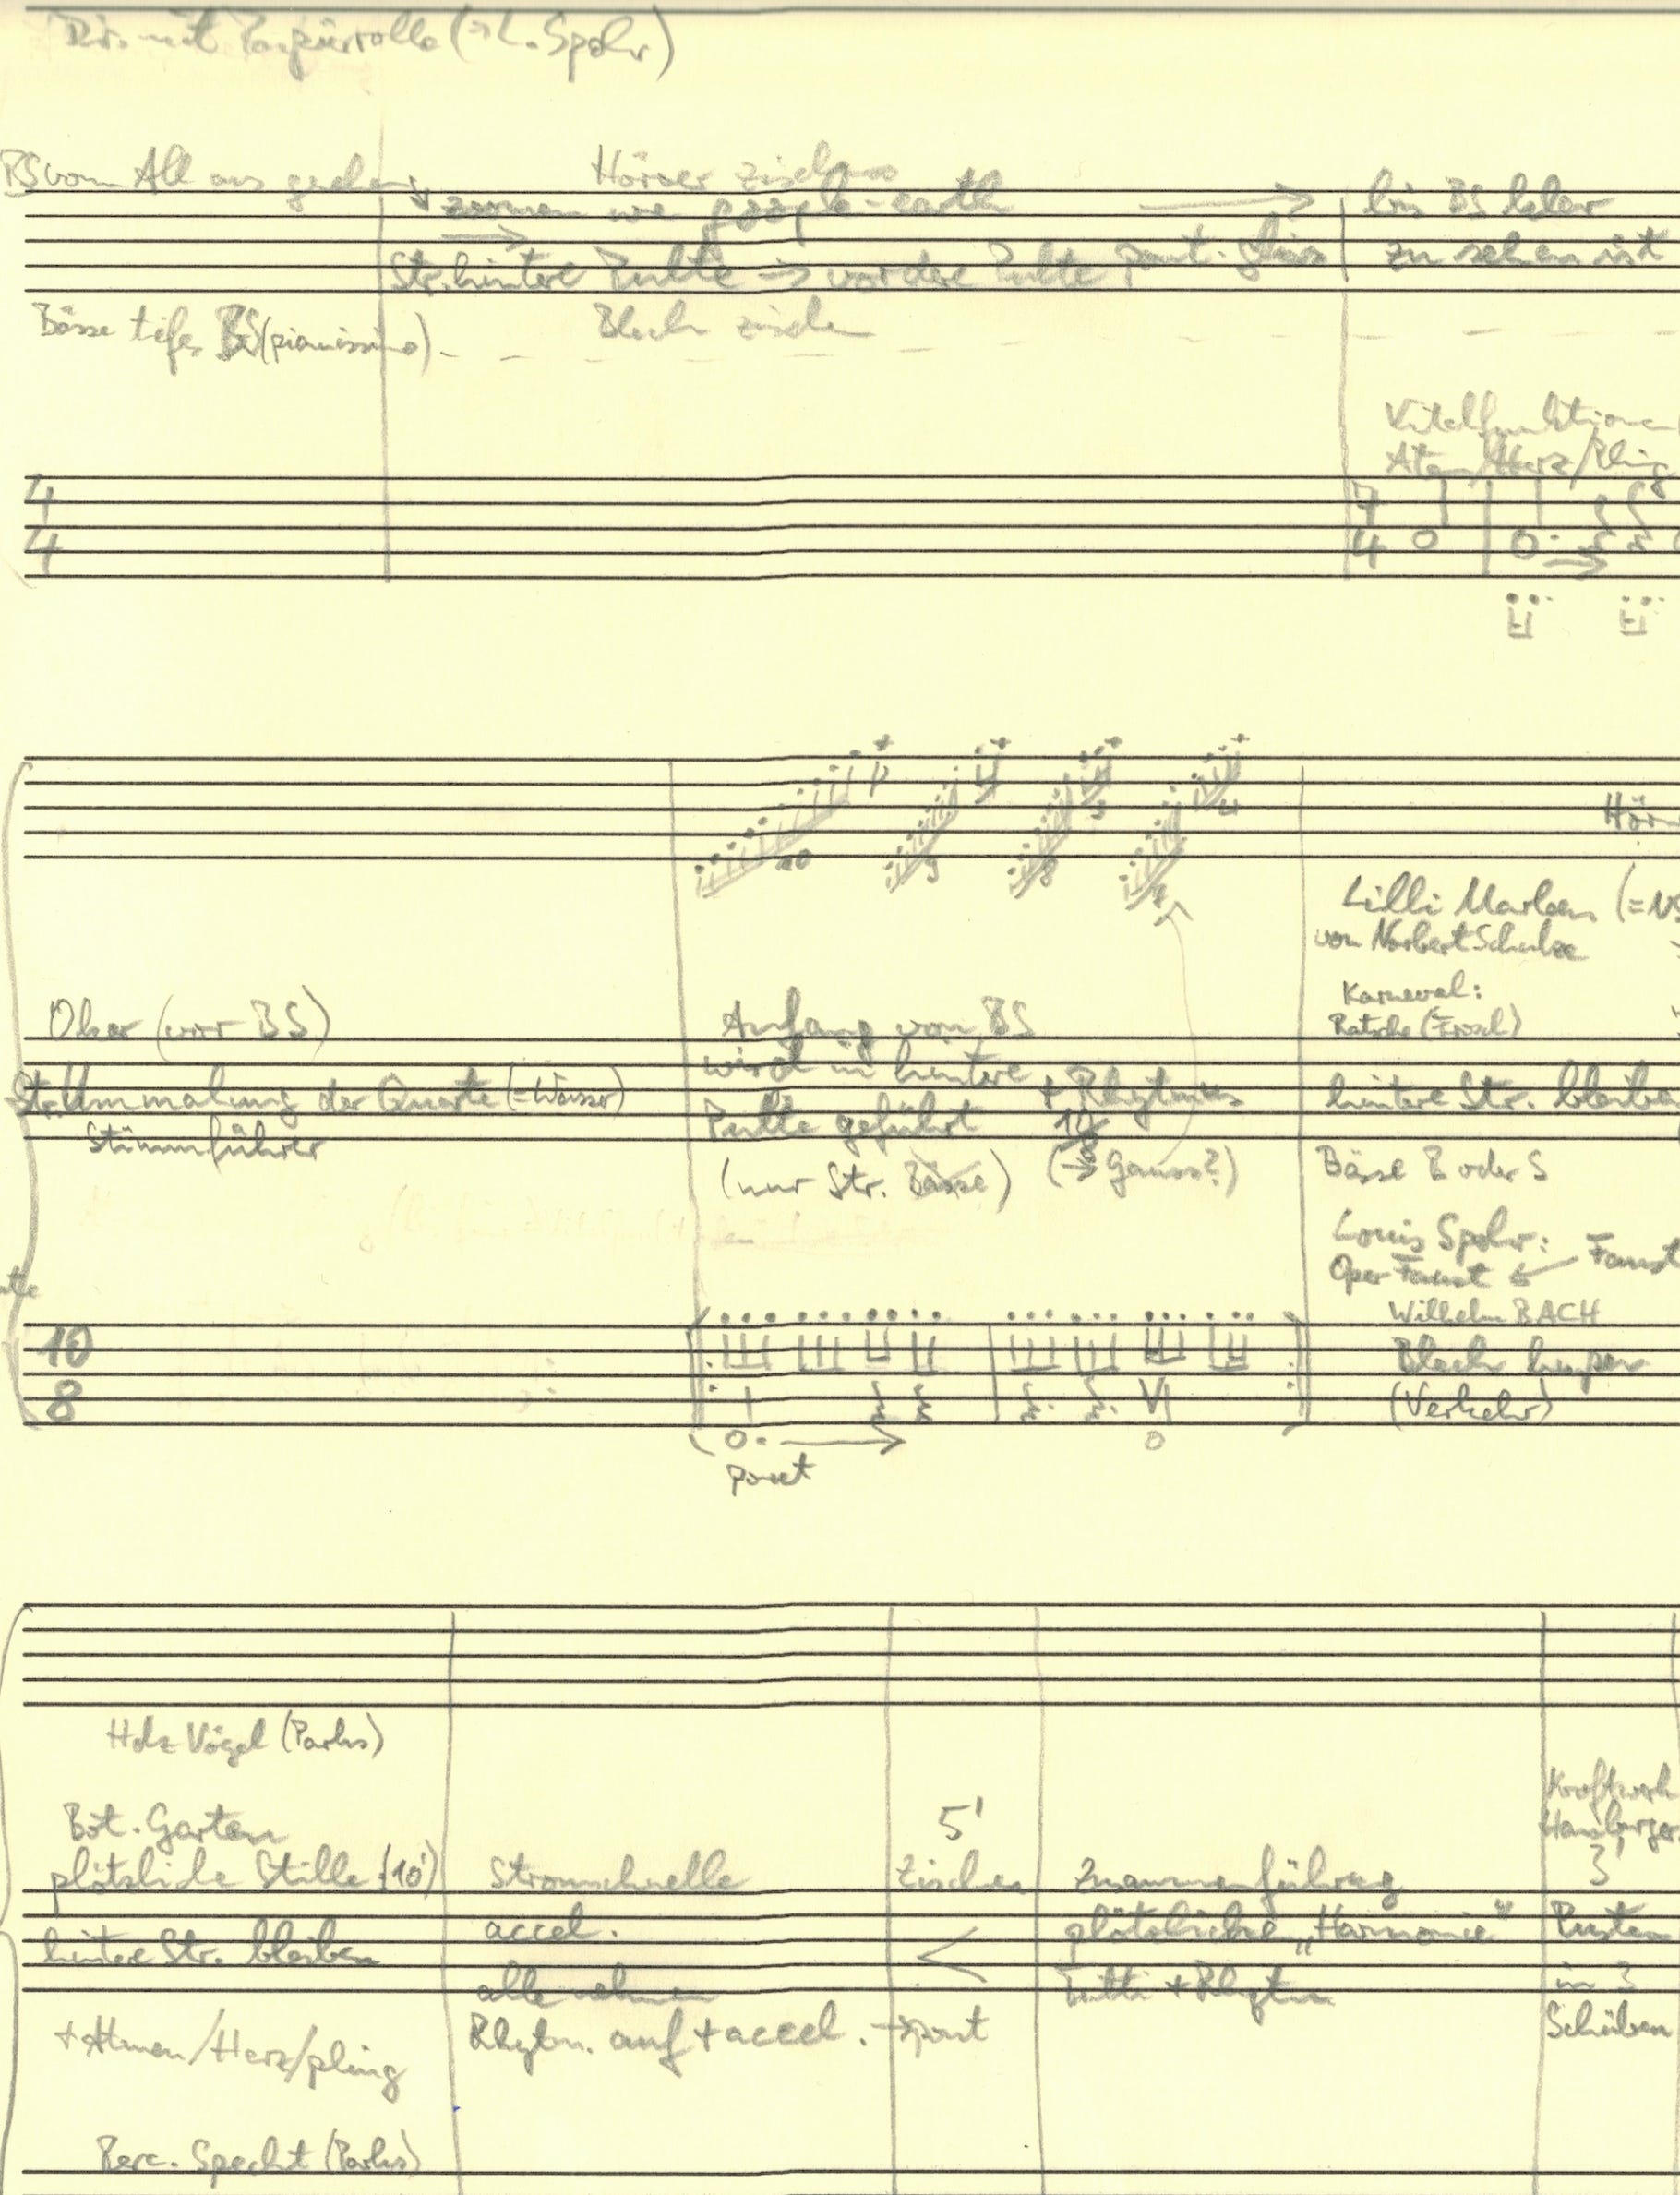 Dir. mit Papierrolle (→ L. Spohr)
BS vom All aus gesehen
Hörner zischen
zoomen wie google-earth
bis BS klar
Str. hintere Pulte → vordere Pulte, port. gliss
zu sehen ist
Bässe tiefes BS (pianissimo)
Blech zischen
Vitalfunktionen
Atem/Herz/Pling
4
4
7
4
10
9
8
Hörn
Lilli Marleen (=NS
von Norbert Schulze
Karneval:
Ratsche (Frosch)
Oker (vor BS)
Anfang von BS
wird in hintere
+ Rhythmus
Str. Ummalung der Quarte (=Wasser)
Pulte geführt
10/8
hintere Str. bleiben
Stimmführer
(nur Str. Bässe)
(→ Gauss?)
Bässe B oder S
Louis Spohr:
Oper Faust ← Faust
Wilhelm BACH
10
8
Blech hupen
(Verkehr)
port
Holz Vögel (Parks)
Kraftwerk
Hamburger
Bot. Garten
5'
3'
plötzliche Stille (10')
Stromschnelle
Zischen
Zusammenführung
hintere Str. bleiben
accel.
<
plötzliche „Harmonie"
Pusten
in 3
alle nehmen
Tutti + Rhythm
+ Atmen/Herz/pling
Rhythm. auf + accel. → port
Schüben
Perc. Specht (Parks)